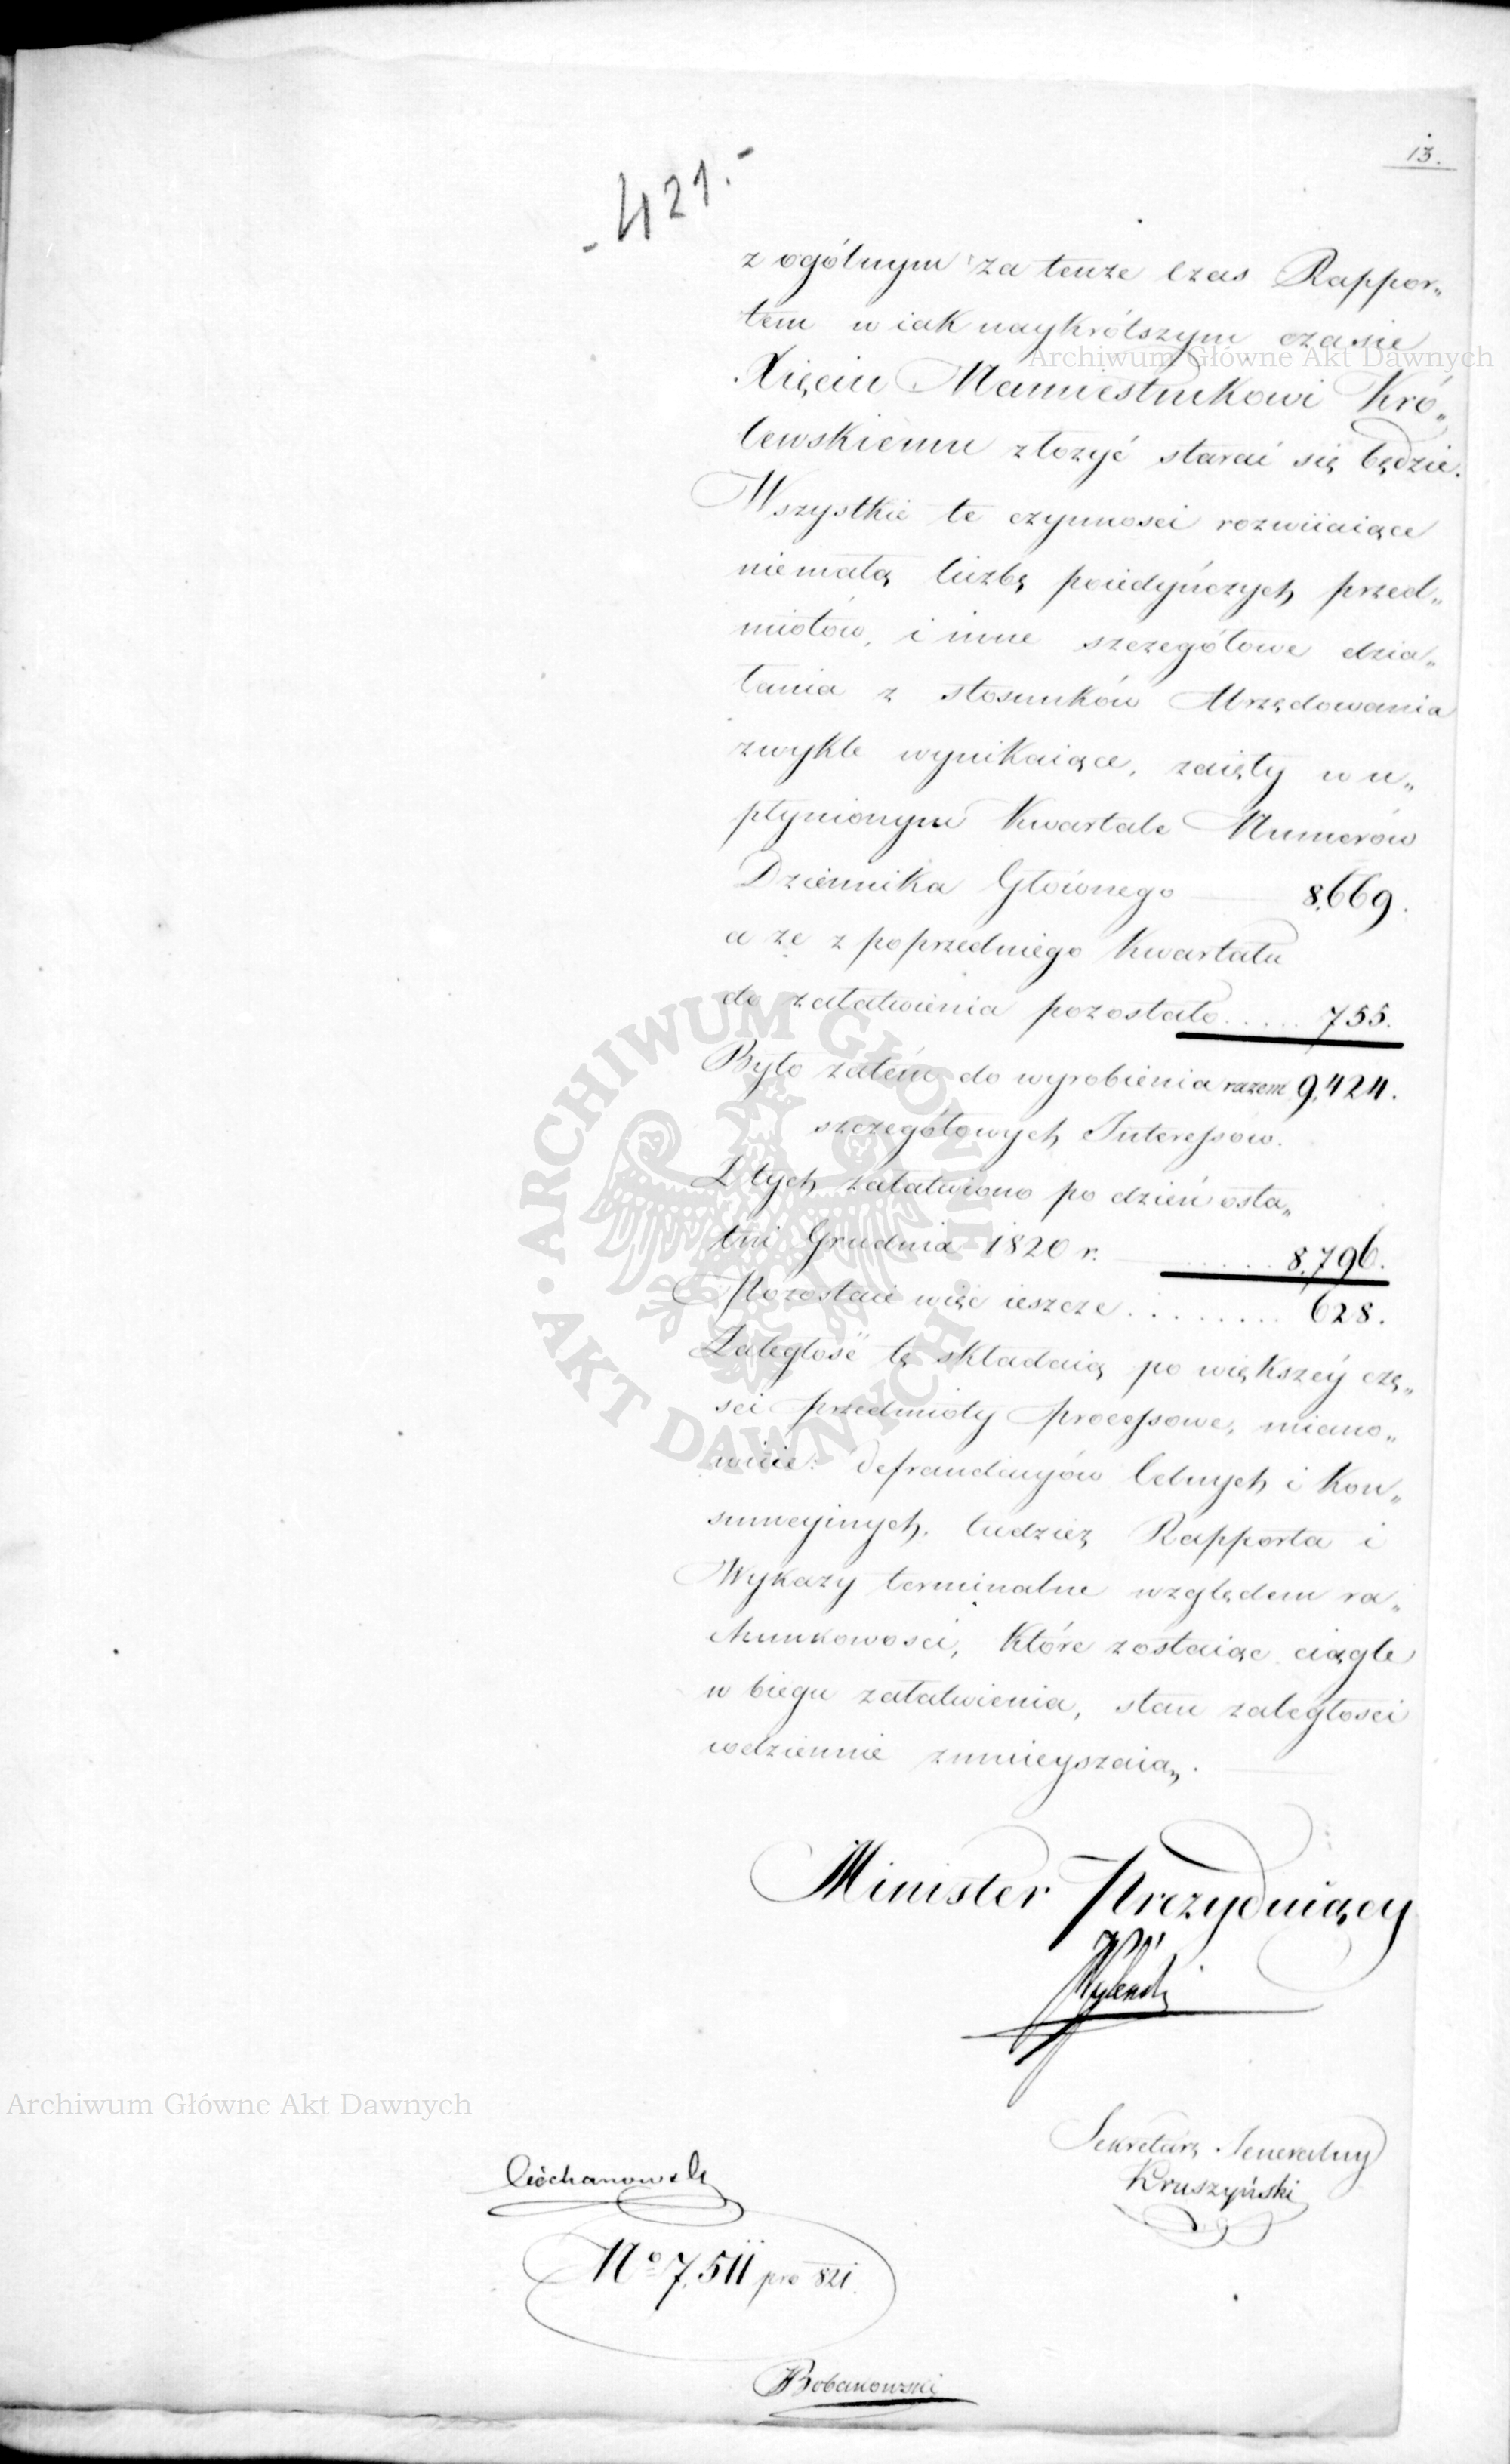 13.
- 421. -
z ogólnym za tenże Czas Rappor„
tem w iak naykrótszym czasie
Archiwum Główne Akt Dawnych
Xięciu Namiestnikowi Kró„
lewskiemu złożyć starać się będzie.
Wszystkie te czynności rozwiiaiące
niemałą liczbę poiedyńczych przed„
miotów, i inne szczegółowe dzia„
łania z stosunków Urzędowania
zwykle wynikaiące, zaięły w u„
płynionym Kwartale Numerów
Dziennika Głównego 8,669.
a że z poprzedniego Kwartału
do załatwienia pozostało..... 755.
Było zatém do wyrobienia razem 9,424.
szczegółowych Interessów.
Z tych załatwiono po dzień osta„
tni Grudnia 1820 r. ...... 8,796.
Pozostaie więc ieszcze......... 628.
Zaległość tę składaią po większéy czę„
ści przedmioty processowe, miano„
wicie: defraudacyiów Celnych i Kon„
sumcyinych, tudzież Rapporta i
Wykazy terminalne względem ra„
chunkowości, które zostaiąc ciągle
w biegu załatwienia, stan zaległości
codziennie zmnieyszaią.
ARCHIWUM GŁÓWNE AKT DAWNYCH
Minister Prezyduiący
Archiwum Główne Akt Dawnych
Sekretarz Jeneralny
Kruszyński
Ciechanowski
No 7,511 pro 821.